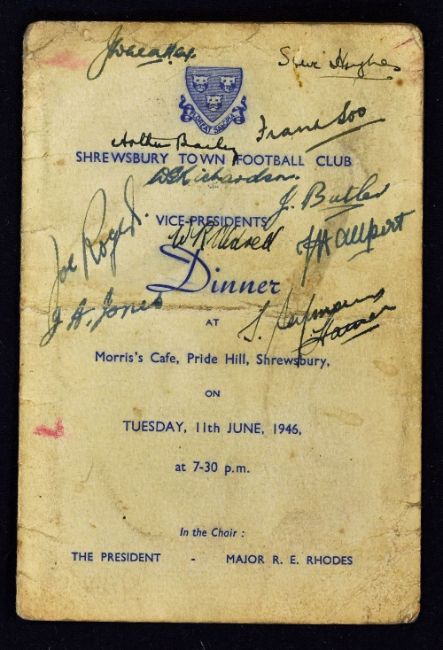 Steve Hughes
Frank Soo
Arthur Bailey
SHREWSBURY TOWN FOOTBALL CLUB
W Richardson.
J. Butler
VICE-PRESIDENTS
Joe Rogers.
Dinner
J. A. Jones
AT
Morris's Cafe, Pride Hill, Shrewsbury,
ON
TUESDAY, 11th JUNE, 1946,
at 7-30 p.m.
In the Chair :
THE PRESIDENT - MAJOR R. E. RHODES